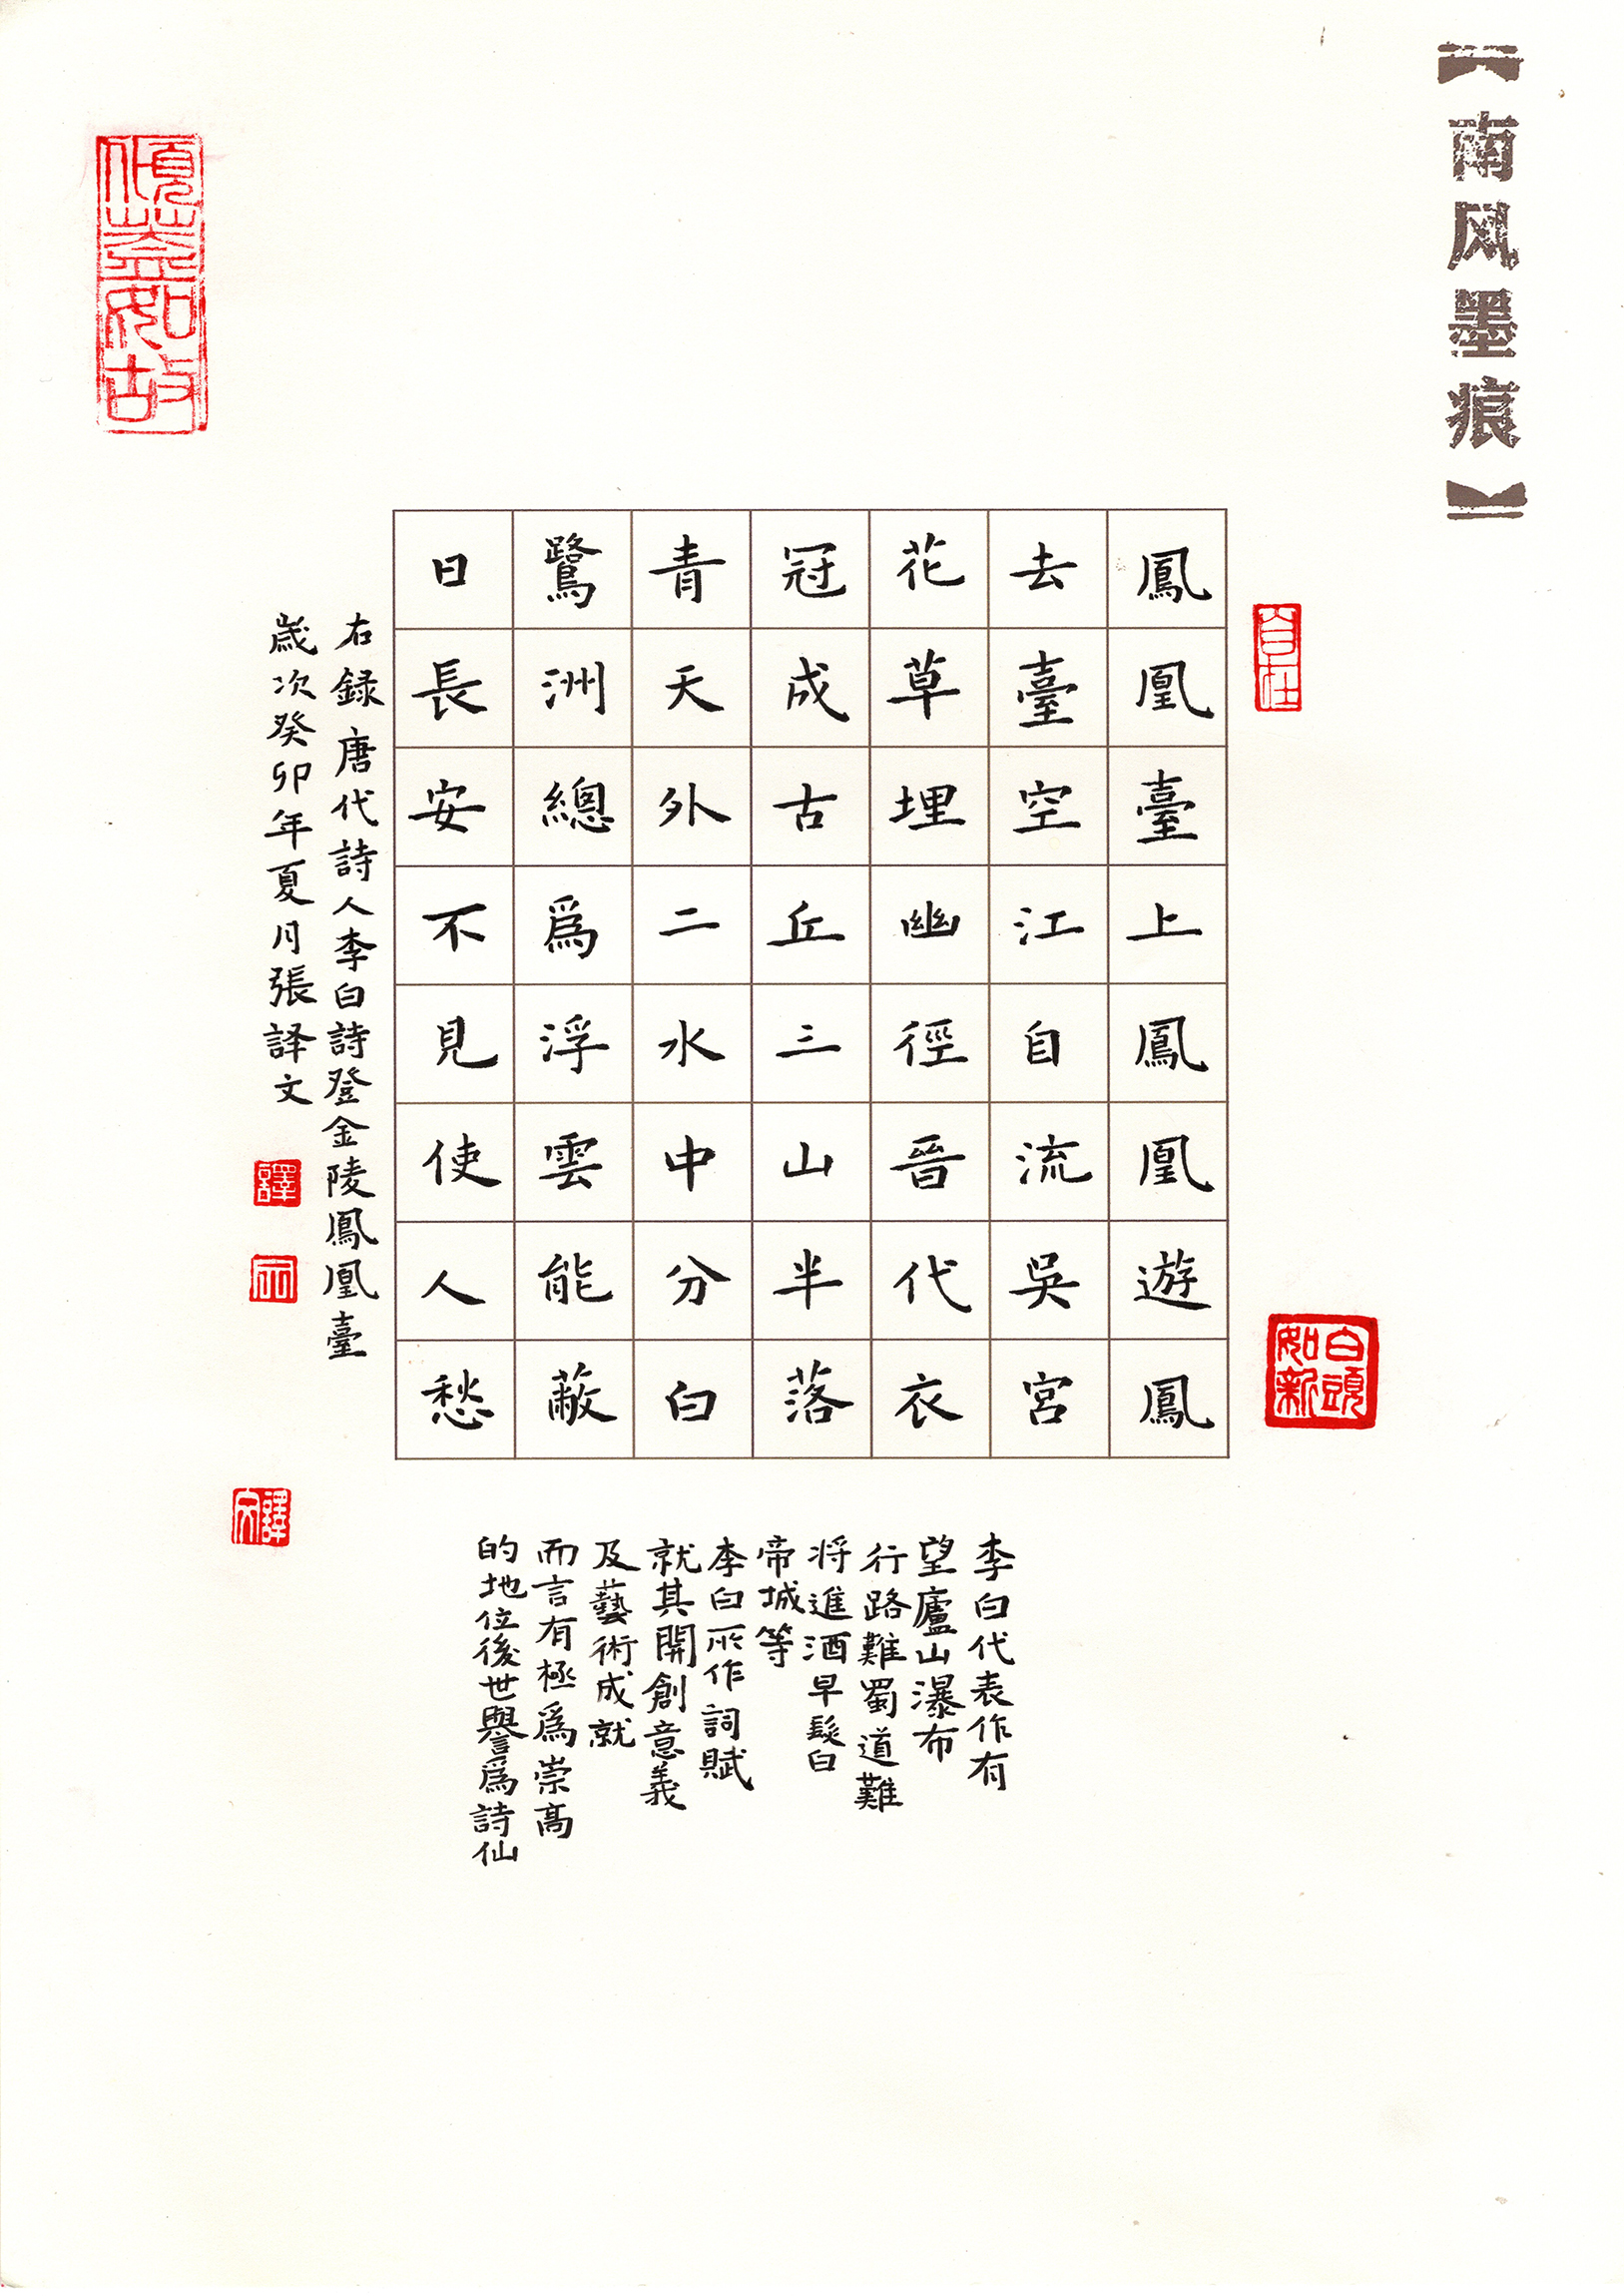 【南风墨痕】
自在
鳳凰臺上鳳凰遊鳳
去臺空江自流吳宮
花草埋幽徑晉代衣
冠成古丘三山半落
青天外二水中分白
鷺洲總爲浮雲能蔽
日長安不見使人愁
白頭如新
右録唐代詩人李白詩登金陵鳳凰臺
歲次癸卯年夏月張譯文
譯
文
傾蓋如故
李白代表作有
望廬山瀑布
行路難蜀道難
将進酒早發白
帝城等
李白所作詞賦
就其開創意義
及藝術成就
而言有極爲崇高
的地位後世譽爲詩仙
譯文